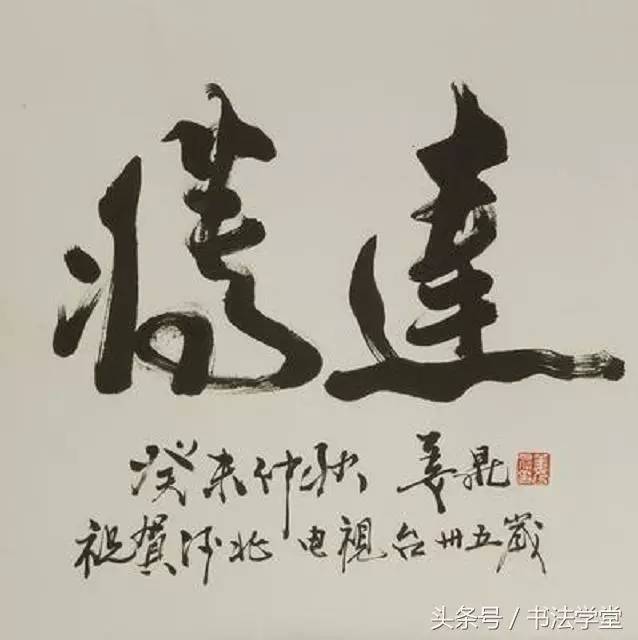 腾達
癸未仲秋 姜昆
祝賀河北电視台卅五歲
头条号 / 书法学堂